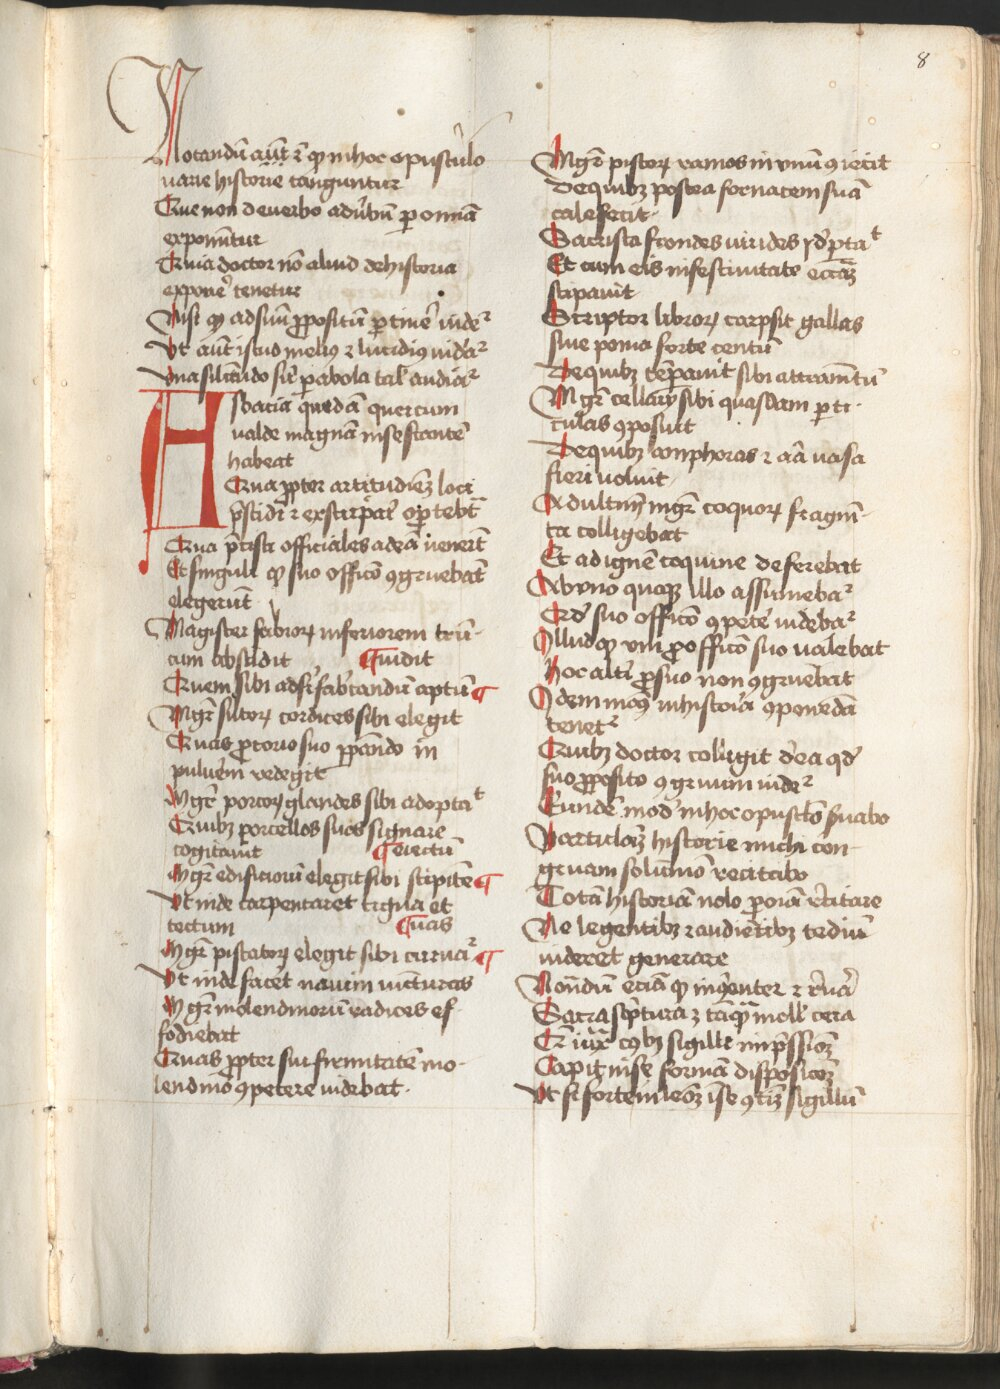 8
Notandū aūt ē qͥ in hoc opusculo
varie historie tanguntur
Que non de verbo ad v̓bū p oīnia
exponūtur
Quia doctor nō aliud de historia
expone᷑ tenetur
Nisi qͥ ad suū ꝓpositū ptine᷑ videꝛ
Ut aūt istud melius ⁊ lucidius videaꝛ
Una silitudo siue pabola tal̓ audiaꝛ
Abbacia quedā quercum
valde magnā in se stantē
habeat
Qua ꝓpter artitudinē loci
p̄scidi ⁊ exstirpari oportebat
Qua p̄cisa officiales ad eā venerūt
Et singuli qͥ suo officō ꝯgruebāt
elegerūt
Magister fabroꝝ inferiorem trū-
cum abscidit
¶ cudit
Quem sibi ad fabricandū aptū ¶
Mgr̄ sutoꝝ cortices sibi elegit
Quas ꝓ corio suo ꝑando in
pulverem redegit
Mgr̄ porcoꝝ glandes sibi adoptat
Quibꝫ porcellos suos signare
cogitavit
¶ erectū
Mgr̄ edificiorū elegit sibi stipitē ¶
Ut inde carpentaret tigna et
tectum
¶ vas
Mgr̄ piscatoꝝ elegit sibi curva ¶
Ut inde faceret navim
Mgr̄ molendinorū radices ef-
fodiebat
Quas ꝓpter sui firmitatē mo-
lendinō ꝯpetere videbat
Mgr̄ pistoꝝ ramos in unū ꝯiecit
De quibꝫ postea fornacem suā
calefecit
Sacrista frondes virides
Et cum eis in festivitate ecclam
stipavit
Scriptor libroꝝ carpsit gallas
sive poma forte centū
De quibꝫ tēpavit sibi attramētū
Mgr̄ cellarij sibi quasdam pti-
culas ꝯposuit
De quibꝫ amphoras ⁊ alia vasa
fieri voluit
Ad ultimū mgr̄ coquoꝝ fragm̄-
ta colligebat
Et ad ignē coquine deferebat
Ab uno quoqꝫ illo assumebaꝛ
Qd̓ suo officō ꝯpete᷑ videbaꝛ
Illudqꝫ uni ꝓ officō suo valebat
Hoc alteri ꝓ suo non ꝯgruebat
Idem modus in historia ꝯponenda
tenetꝛ
Quibꝫ doctor colligit ea qd̓
suo ꝓposito ꝯgruum videꝛ
Eundē modū in hoc opusculo servabo
Particulam historie michi con-
gruam solūmō recitabo
Totā historiā nolo p oīnia recitare
Ne legentibꝫ ⁊ audientibꝫ tediū
videret generare
Notandū eciā qͥ
Sacra scriptura ē tāqͣ mollis cera
Que iuxta oībꝫ sigilli imp̄ssionem
Capit in se formā disposicōnem
Ut si forte leonē in se ꝯtinet sigillū